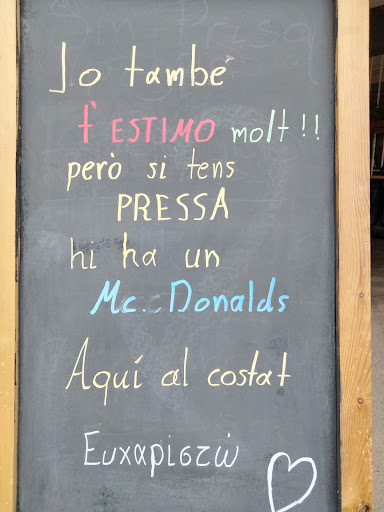 Jo també
t'ESTIMO molt!!
però si tens
PRESSA
hi ha un
Mc. Donalds
Aquí al costat
Ευχαριστώ